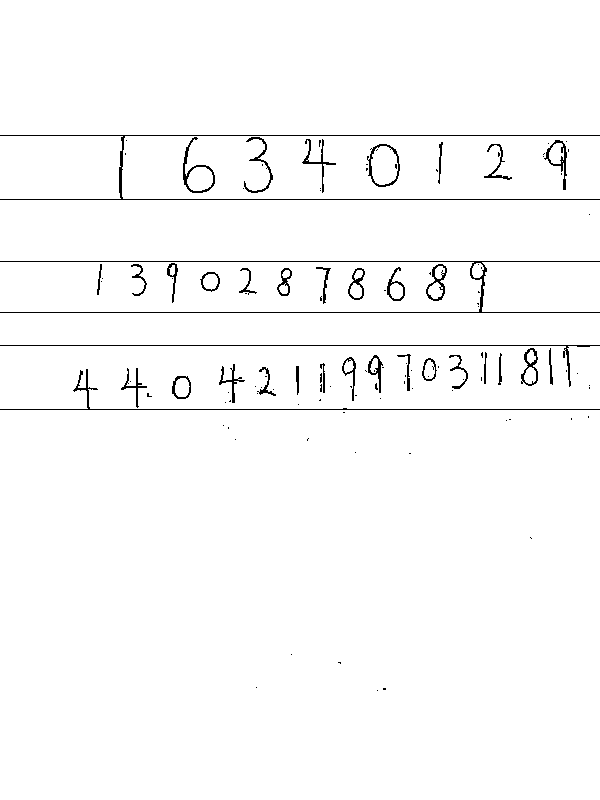 16340129
13902878689
44042119970311811